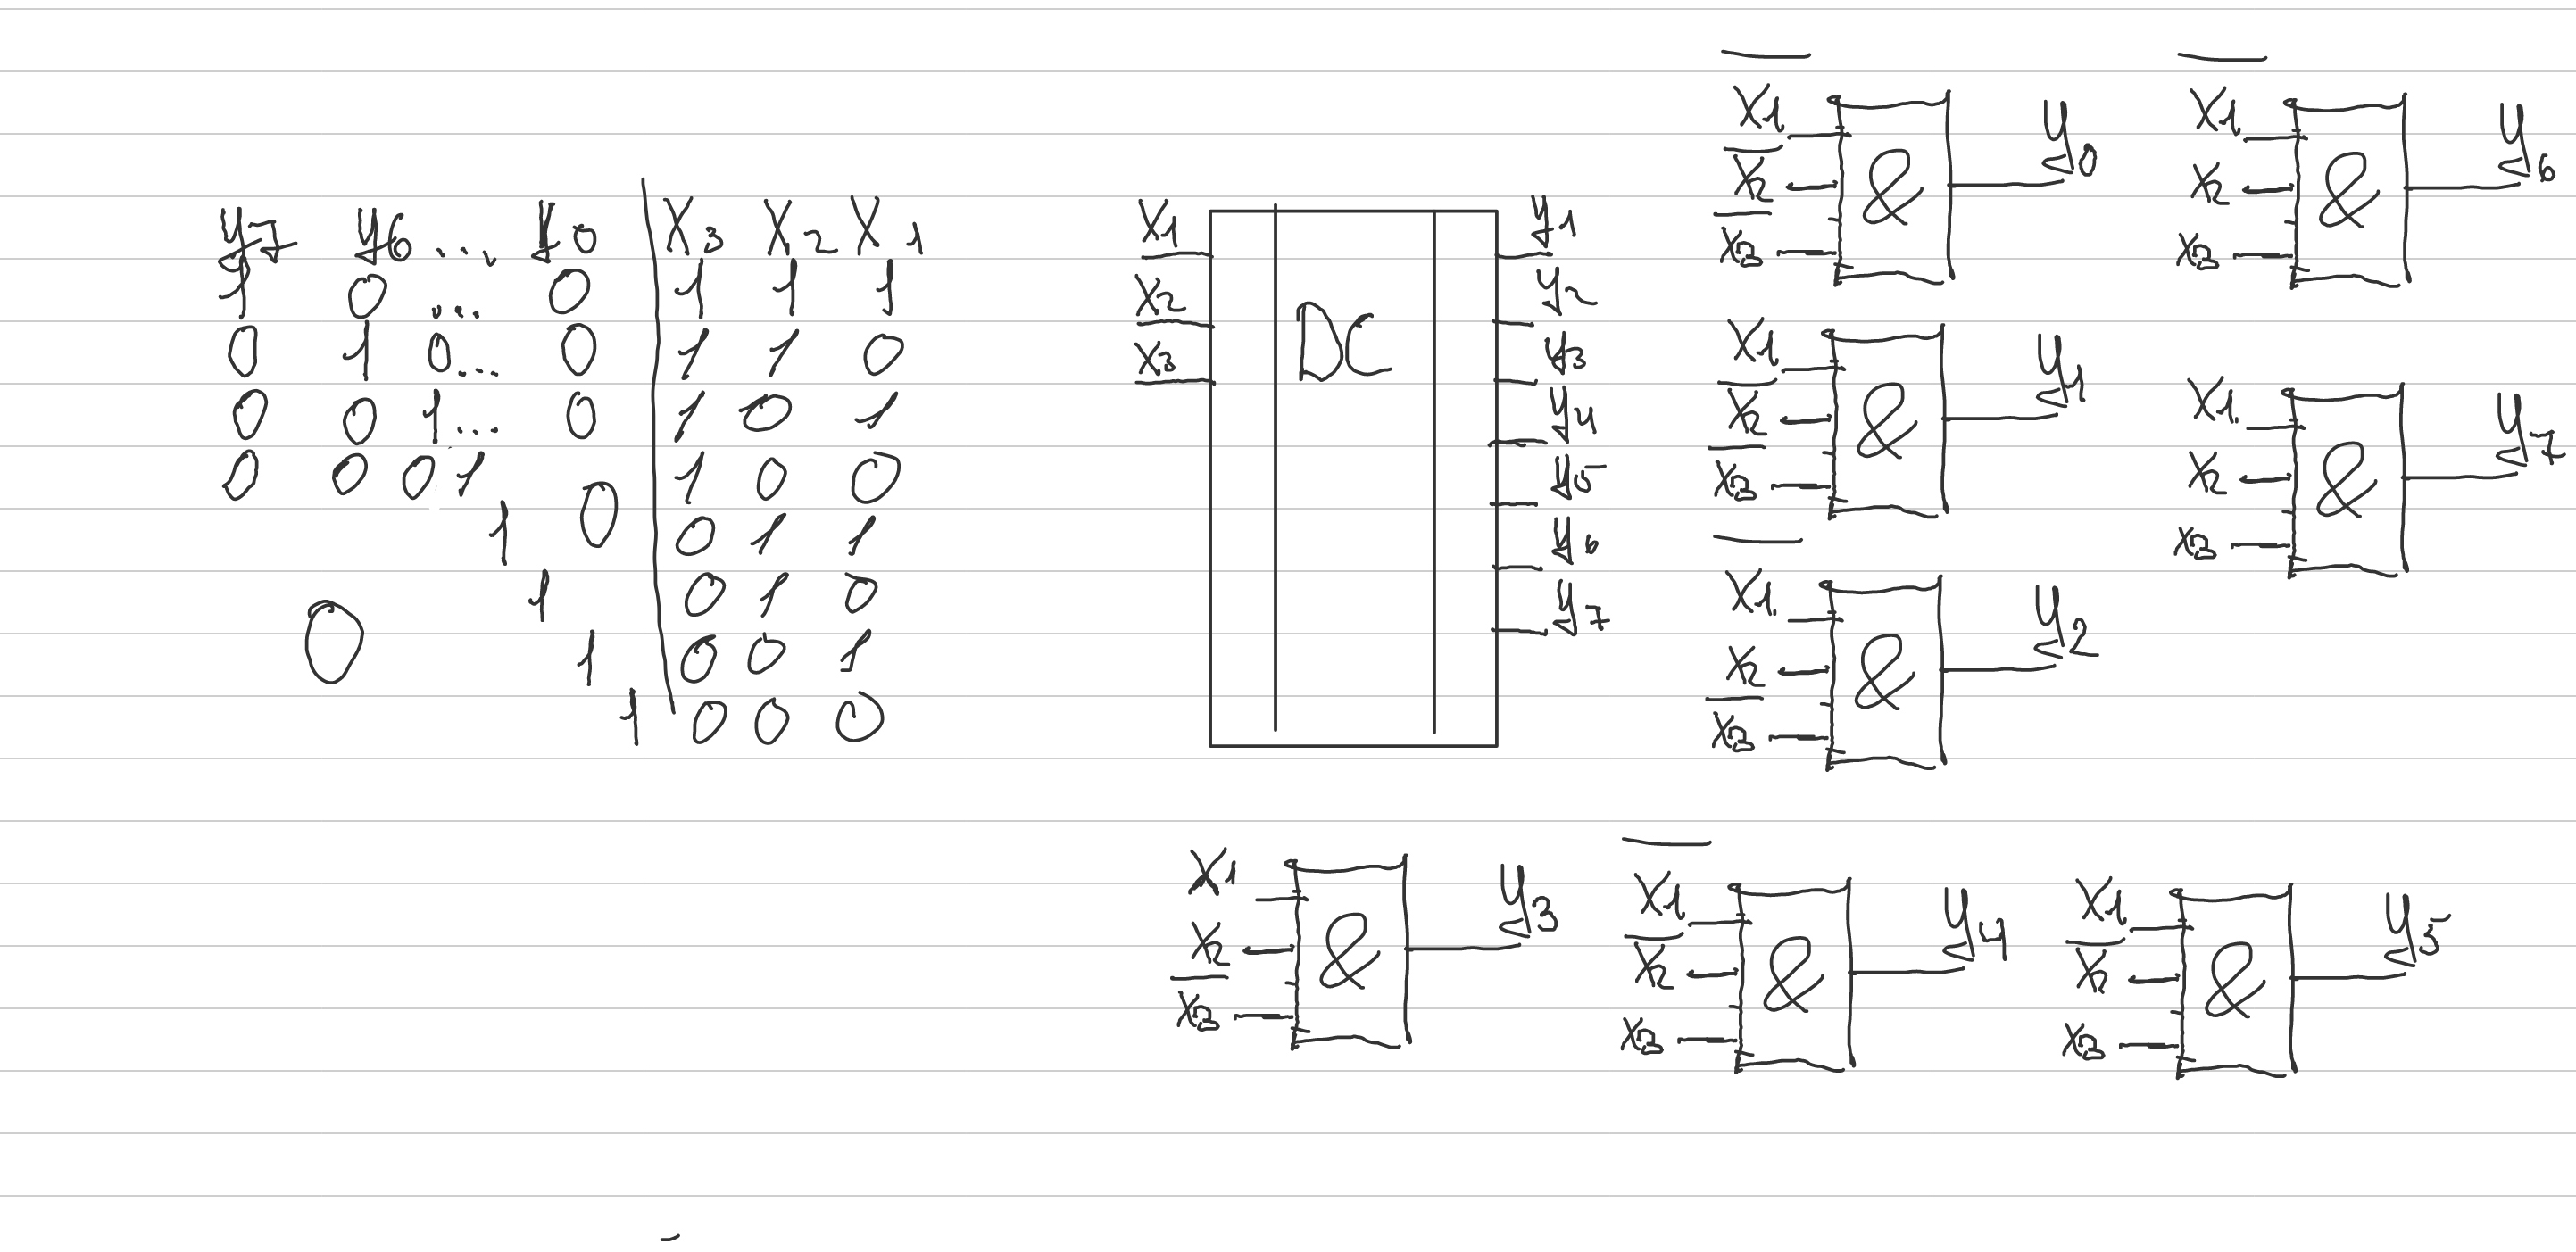 y7 y6 ... y0 | X3 X2 X1
1 0 ... 0 | 1 1 1
0 1 0... 0 | 1 1 0
0 0 1... 0 | 1 0 1
0 0 0 1 | 1 0 0
1 0 | 0 1 1
1 | 0 1 0
0 1 | 0 0 1
1 0 0 0
X1
X2
X3
DC
y1
y2
y3
y4
y5
y6
y7
X̅1
X̅2
X̅3
&
y0
X1
X̅2
X̅3
&
y1
X̅1
X2
X̅3
&
y2
X̅1
X2
X3
&
y6
X1
X2
X3
&
y7
X1
X2
X̅3
&
y3
X̅1
X̅2
X3
&
y4
X1
X̅2
X3
&
y5